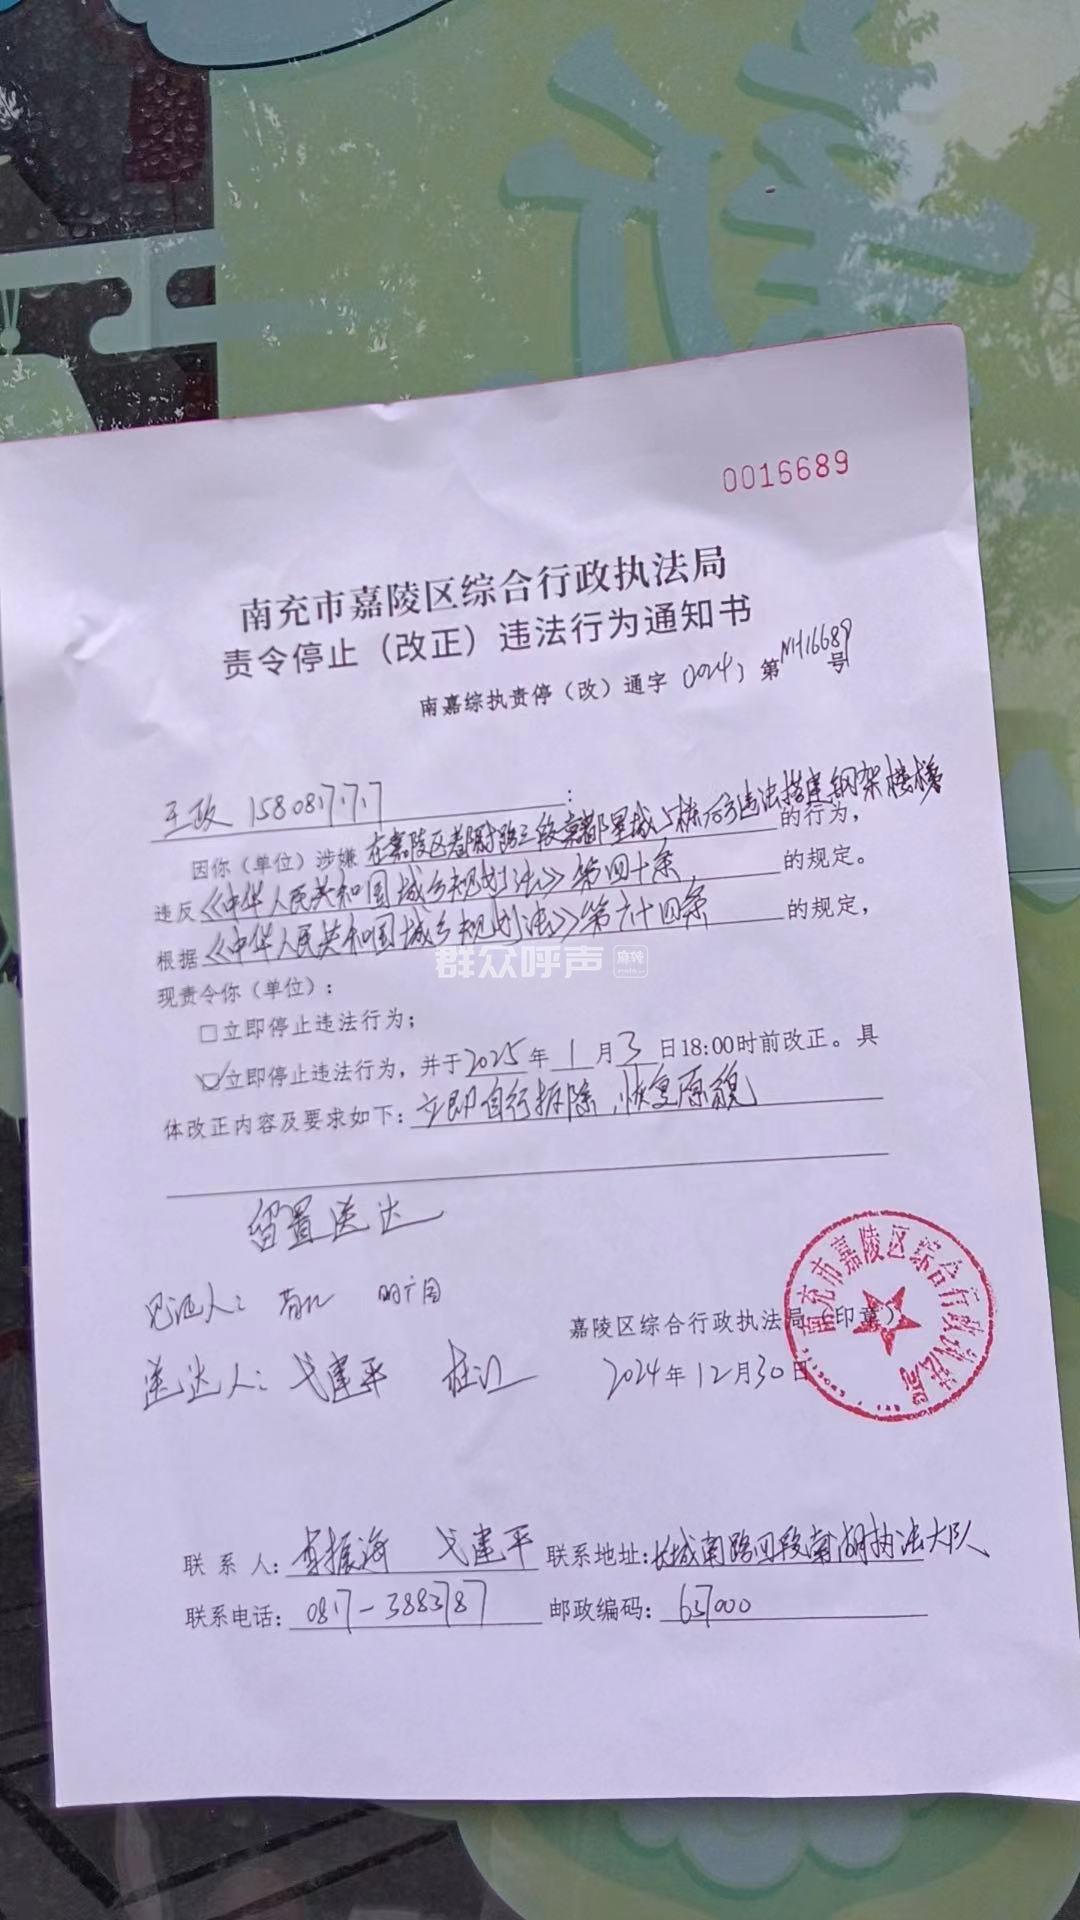 0016689
南充市嘉陵区综合行政执法局
责令停止（改正）违法行为通知书
南嘉综执责停（改）通字 2024 第NH16689号
王政 158087777：
因你（单位）涉嫌 在嘉陵区都尉路三段京都星城5栋后方违法搭建钢架楼梯 的行为，
违反《中华人民共和国城乡规划法》第四十条， 的规定。
根据《中华人民共和国城乡规划法》第六十四条 的规定，
群众呼声 麻辣
现责令你（单位）：
□立即停止违法行为；
☑立即停止违法行为，并于2025年1月3日18:00时前改正。具
体改正内容及要求如下：立即自行拆除，恢复原貌
留置送达
见证人：
送达人：戈建平
嘉陵区综合行政执法局（印章）
2024年12月30日
南充市嘉陵区综合行政执法局
联系人：李振海 戈建平 联系地址：长城南路四段南湖执法大队
联系电话：0817-3883787 邮政编码：637000